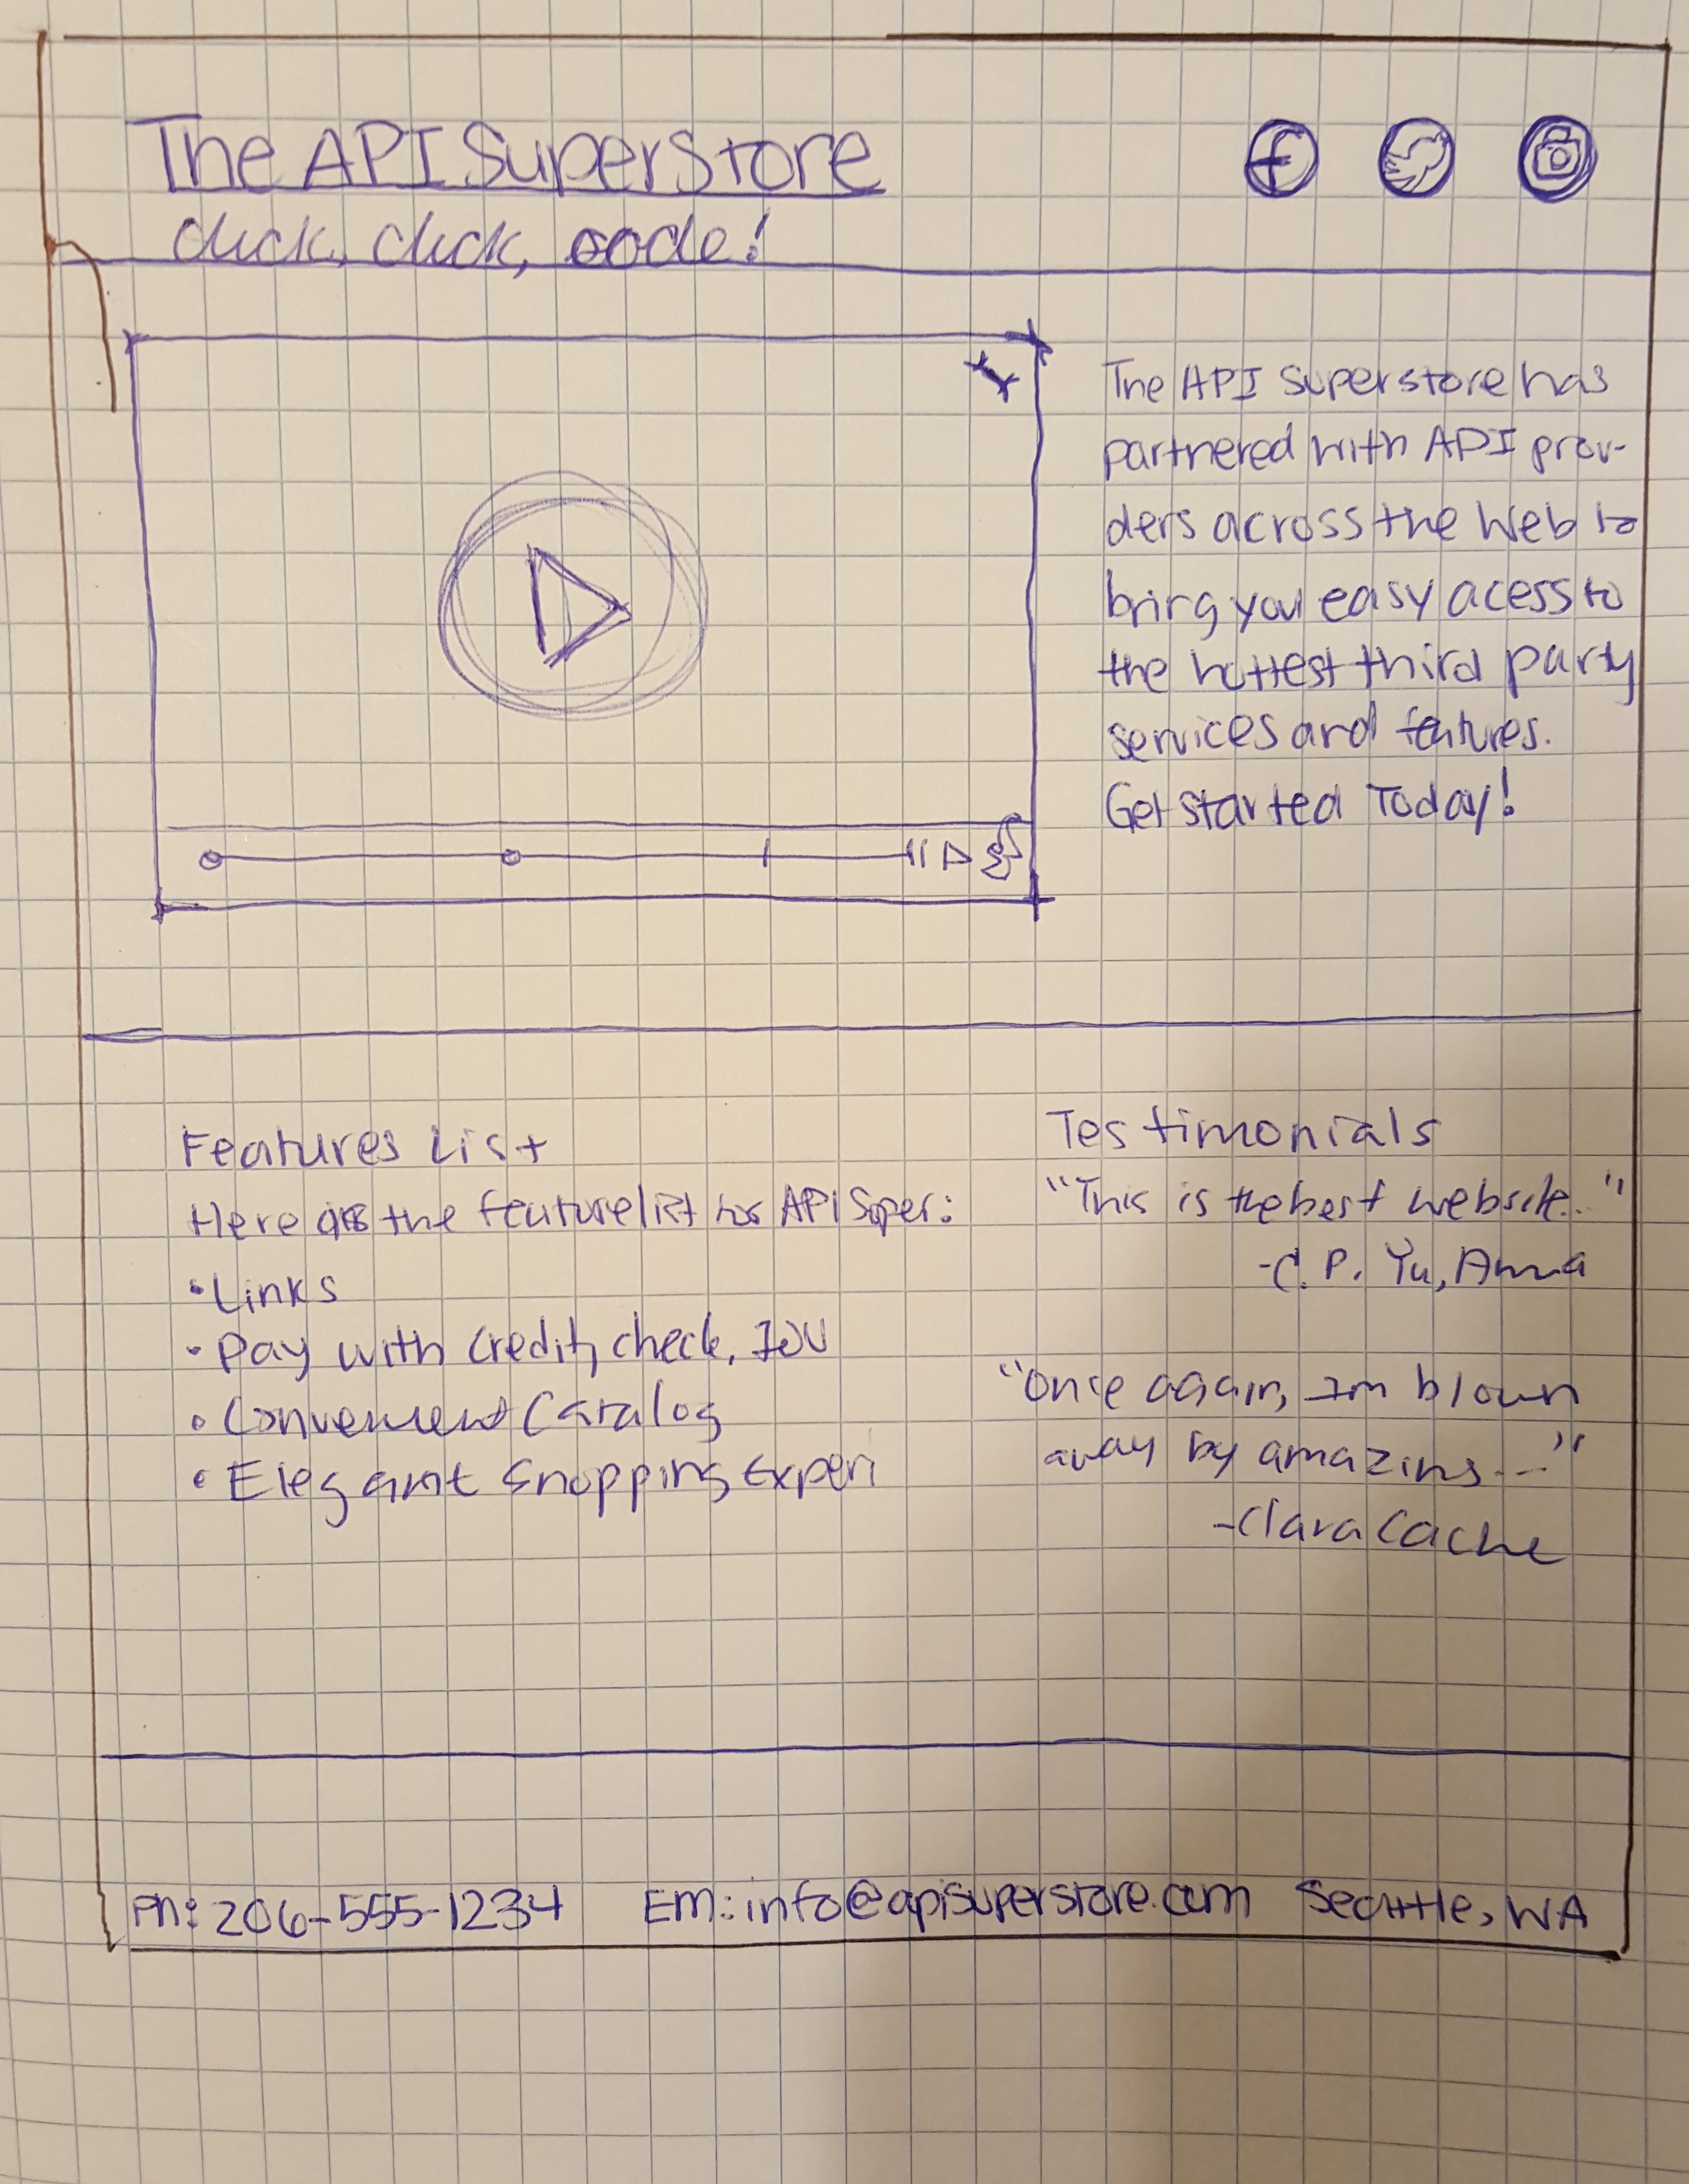 The API Superstore
click, click, code!
The API Superstore has
partnered with API prov-
ders across the Web to
bring you easy acess to
the hottest third party
services and features.
Get started Today!
Features List
Here are the feature list for API Super:
• Links
• Pay with credit, check, IOU
• Convenient Catalog
• Elegant Shopping Experi
Testimonials
"This is the best website..."
-C. P. Yu, Anna
"Once again, Im blown
away by amazing---"
-Clara Cache
PH: 206-555-1234 EM: info@apisuperstore.com Seattle, WA